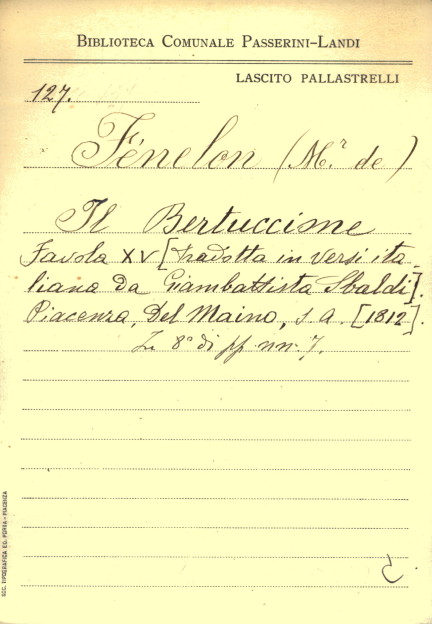 BIBLIOTECA COMUNALE PASSERINI-LANDI
LASCITO PALLASTRELLI
127.
Fénelon (M.r de)
Il Bertuccione
Favola XV [tradotta in versi ita-
liana da Giambattista Sbaldi].
Piacenza, Del Maino, s. a. [1812].
In 8° di pp. nn. 7.
SOC. TIPOGRAFICA ED. PORTA - PIACENZA